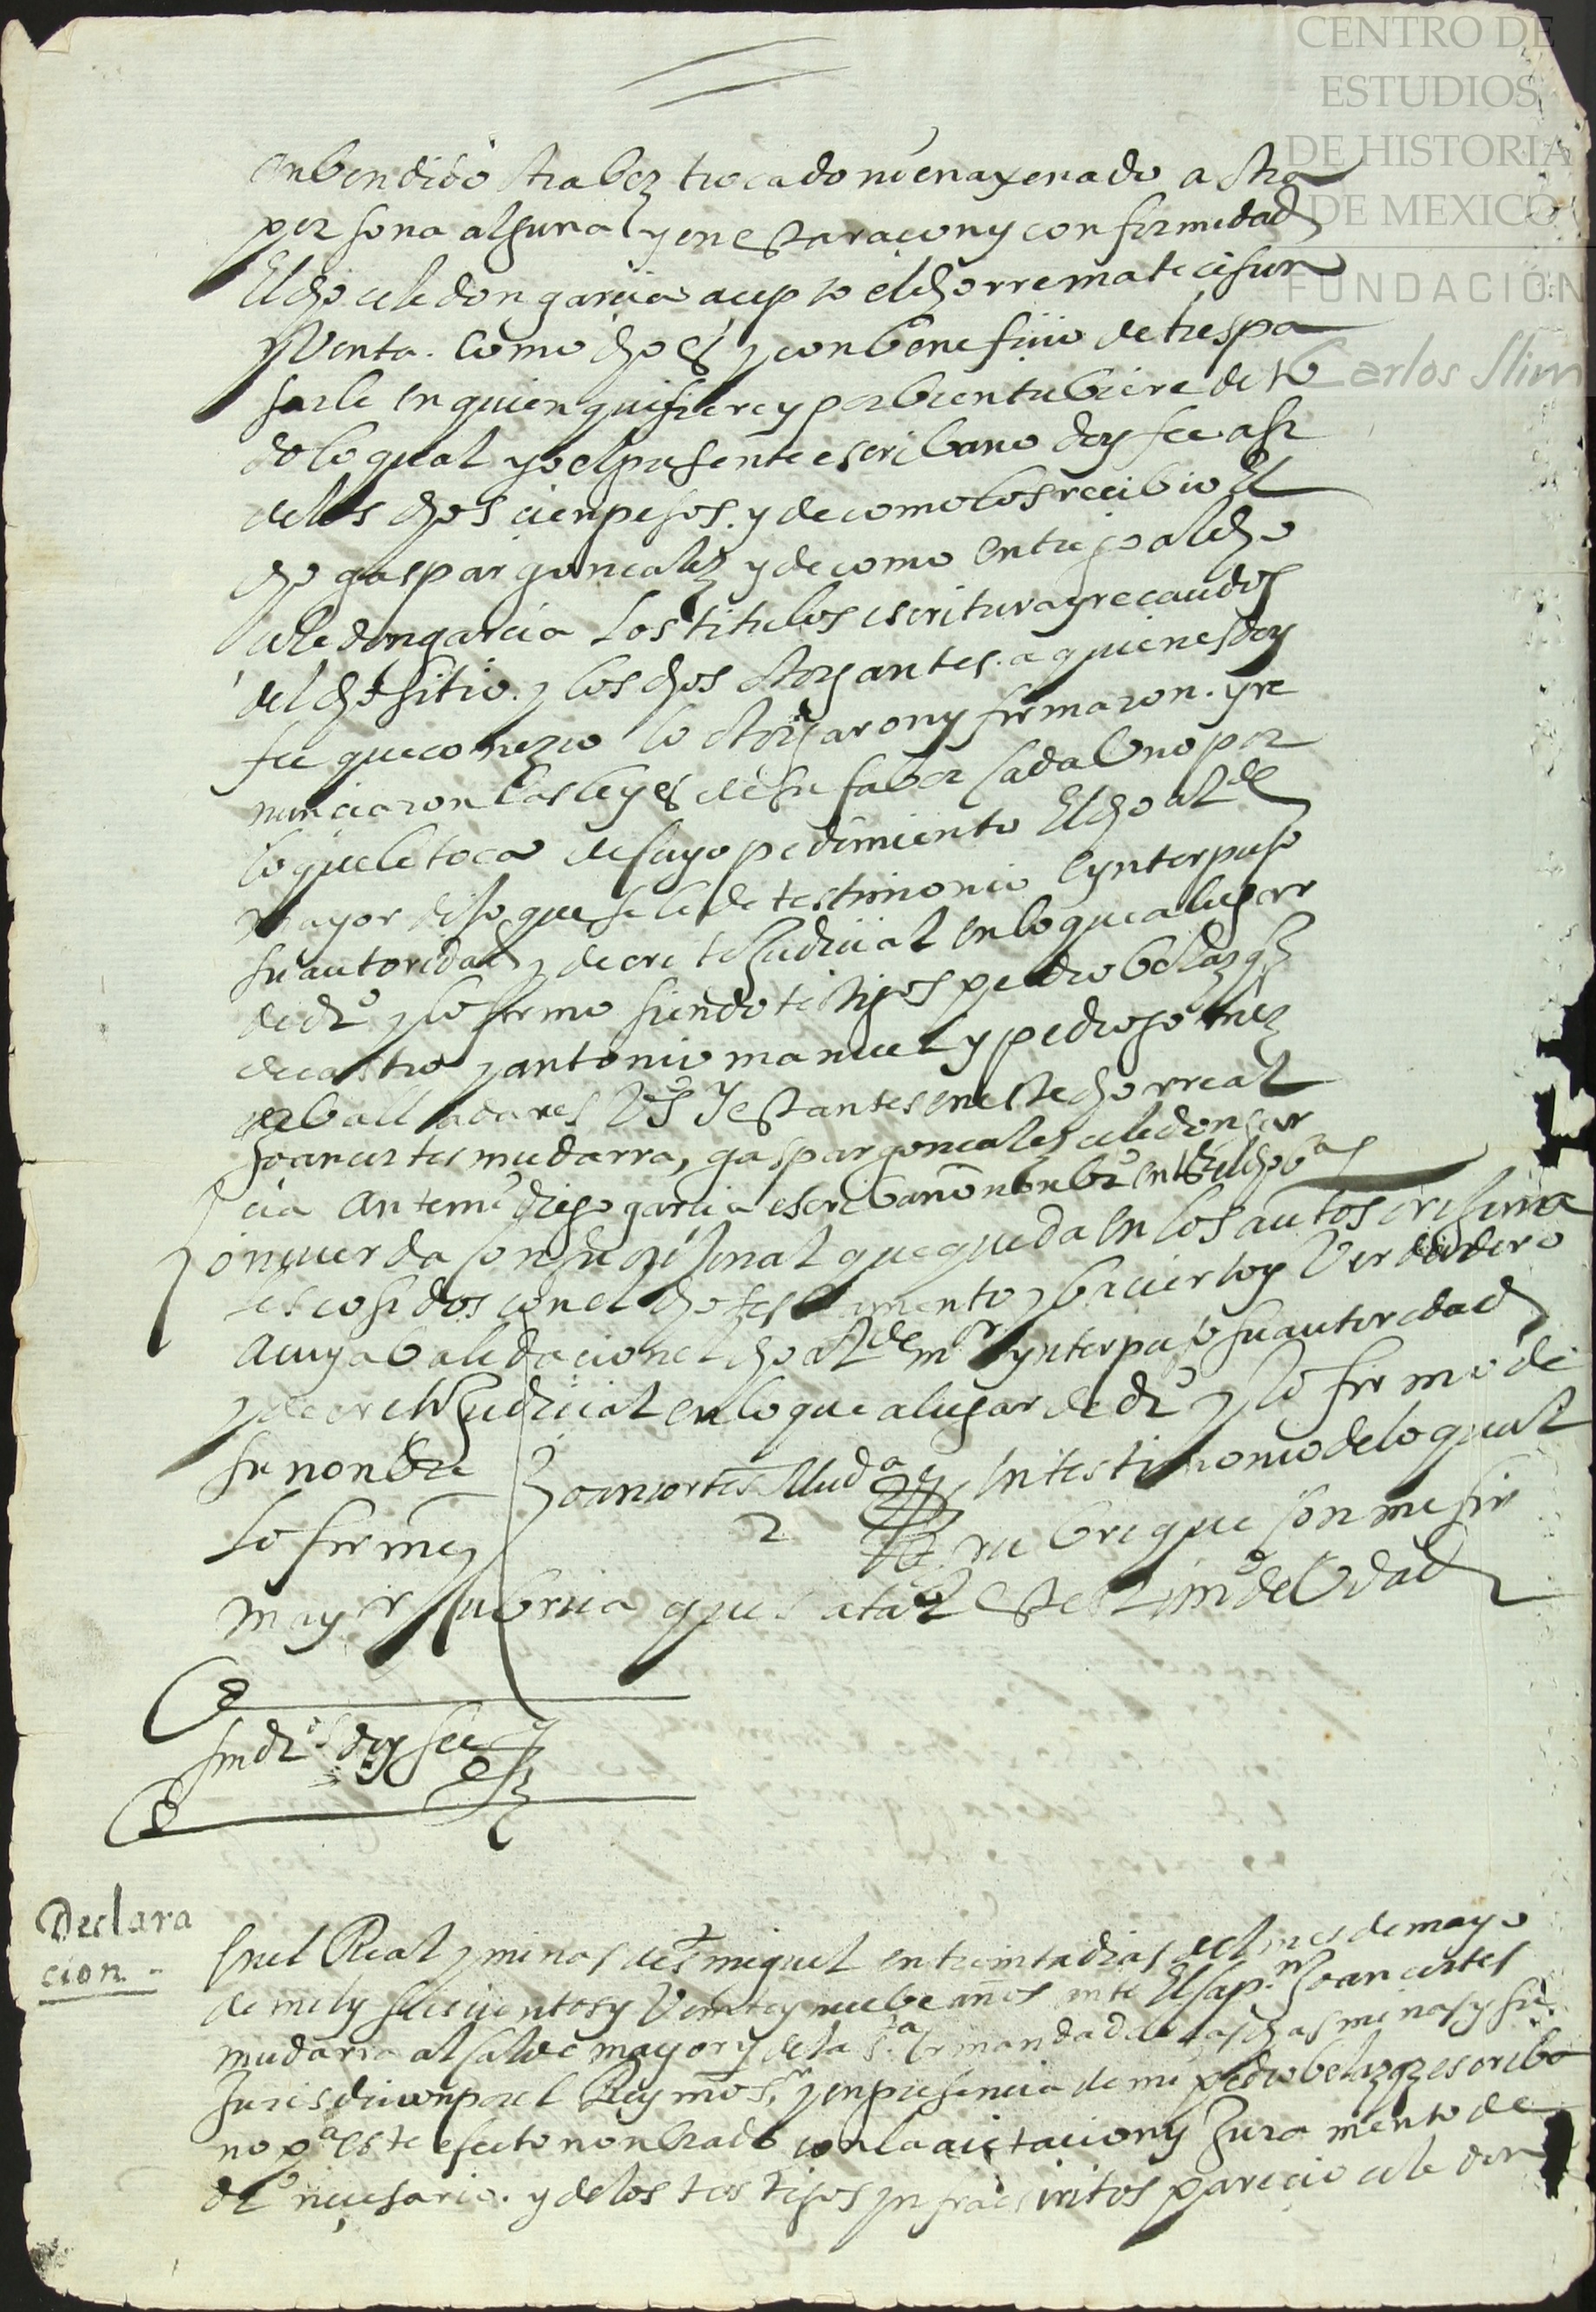 CENTRO DE
ESTUDIOS
DE HISTORIA
DE MEXICO
FUNDACIÓN
Carlos Slim
an bendido otra bez trocado ni enaxenado a otra
persona alguna y en esta raçon y conformedad
El dho celedon garcia acepto el dho rremate cesion
y Venta como dho es y con beneficio de trespa
sarle en quien quisiere y por bien tubiere de to
do lo qual yo el presente escribano doy fee asi
de los dhos cien pesos y de como los recibio El
dho gaspar goncalez y de como entrego al dho
celedon garcia Los titulos escritura y recaudos
del dho sitio y los dhos otorgantes a quienes doy
fee que conozco lo otorgaron y firmaron y re
nunciaron las leyes de su fabor cada Uno por
lo que le toca de cuyo pedimiento El dho allde
mayor dijo que se le de testimonio E ynterpuso
su autoridad y decreto Judicial en lo que a lugar
de dro y lo firmo siendo testigos pedro belazqz
de castro y antonio manuel y pedro gomez
de balladares Vos Y estantes en este dho rreal
Joan cortes mudarra, gaspar goncalez celedon gar
cia ante mi diego garcia escribano nonbrado
concuerda con su original que queda en los autos origina
les cosidos con el dho testamento y ba cierto y Verdadero
a cuya balidacion el dho allde mor ynterpuso su autoridad
y decreto Judicial en lo que a lugar de dro y lo firmo de
su nonbre Joan cortes Muda en testimonio de lo qual
lo firme y rubrique con mi fir
ma y rubrica que es a tal este testimo de Vdad
sin dros doy fee
Declara
cion
En el Real y minas de st miguel en treinta dias del mes de mayo
de mil y seiscientos y Veinte y nuebe años ante El capn Joan cortes
mudarra alcalde mayor y de la sta ermandad de las dhas minas y su
Jurisdicion por el Rey nro sr y en presencia de mi pedro belazqz escriba
no pa este efecto nonbrado con la acetacion y Juramento de
dro necesario y de los testigos ynfraescritos parecio celedon